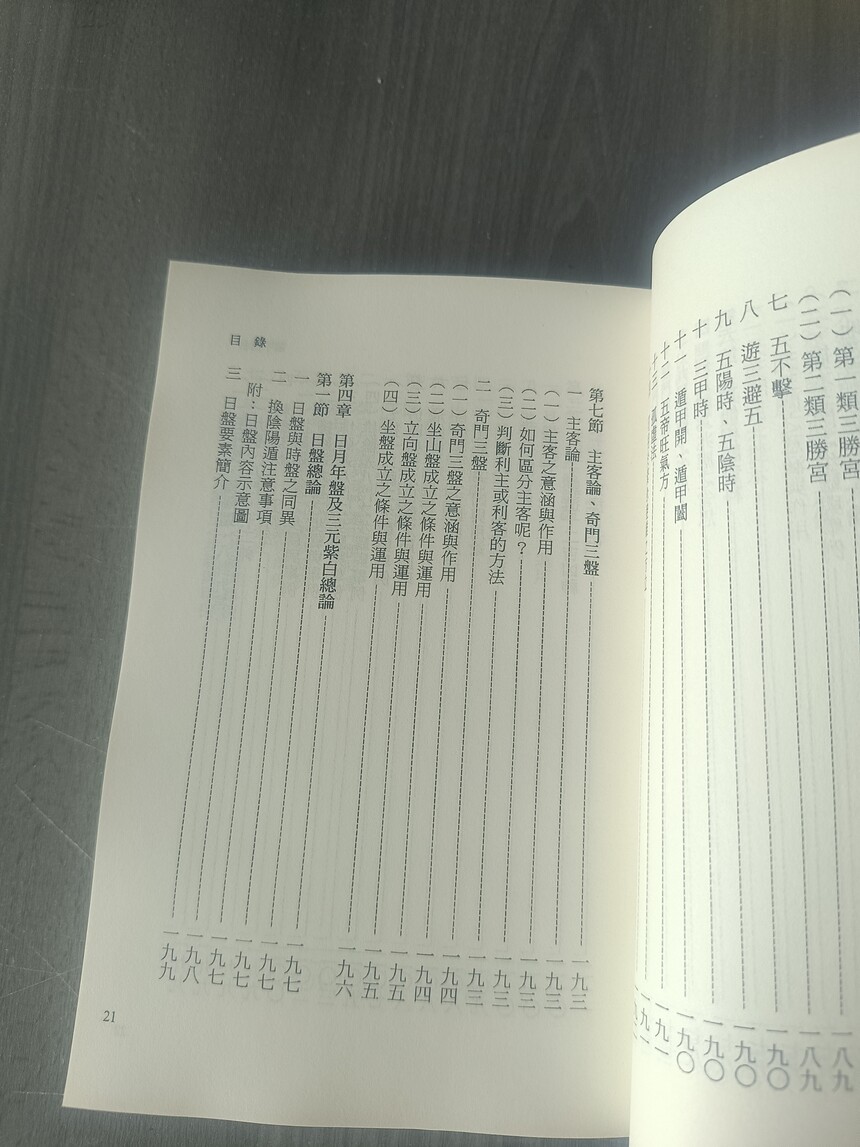 （一）第一類三勝宮 一八九
（二）第二類三勝宮 一八九
七 五不擊 一九〇
八 遊三避五 一九〇
九 五陽時、五陰時 一九〇
十 三甲時 一九〇
十一 遁甲開、遁甲闔 一九一
十二 五帝旺氣方
目錄
第七節 主客論、奇門三盤 一九三
一 主客論 一九三
（一）主客之意涵與作用 一九三
（二）如何區分主客呢？ 一九三
（三）判斷利主或利客的方法 一九三
二 奇門三盤 一九四
（一）奇門三盤之意涵與作用 一九四
（二）坐山盤成立之條件與運用 一九五
（三）立向盤成立之條件與運用 一九五
（四）坐盤成立之條件與運用 一九六
第四章 日月年盤及三元紫白總論 一九七
第一節 日盤總論 一九七
一 日盤與時盤之同異 一九七
二 換陰陽遁注意事項 一九七
附：日盤內容示意圖 一九八
三 日盤要素簡介 一九九
21